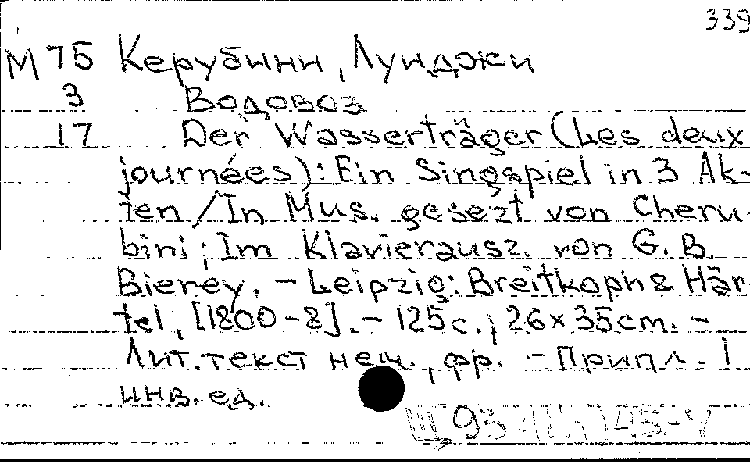 339
М 75 Керубини, Луиджи
3 Водовоз
17 Der Wasserträger (Les deux
journées): Ein Singspiel in 3 Ak-
ten / In Mus. gesezt von Cheru-
bini; Im Klavierausz. von G. B.
Bierey. - Leipzig: Breitkoph & Här-
tel, [1800-8]. - 125 с.; 26×35 cm. -
Лит. текст нем., фр. - Припл. 1
инв. ед.